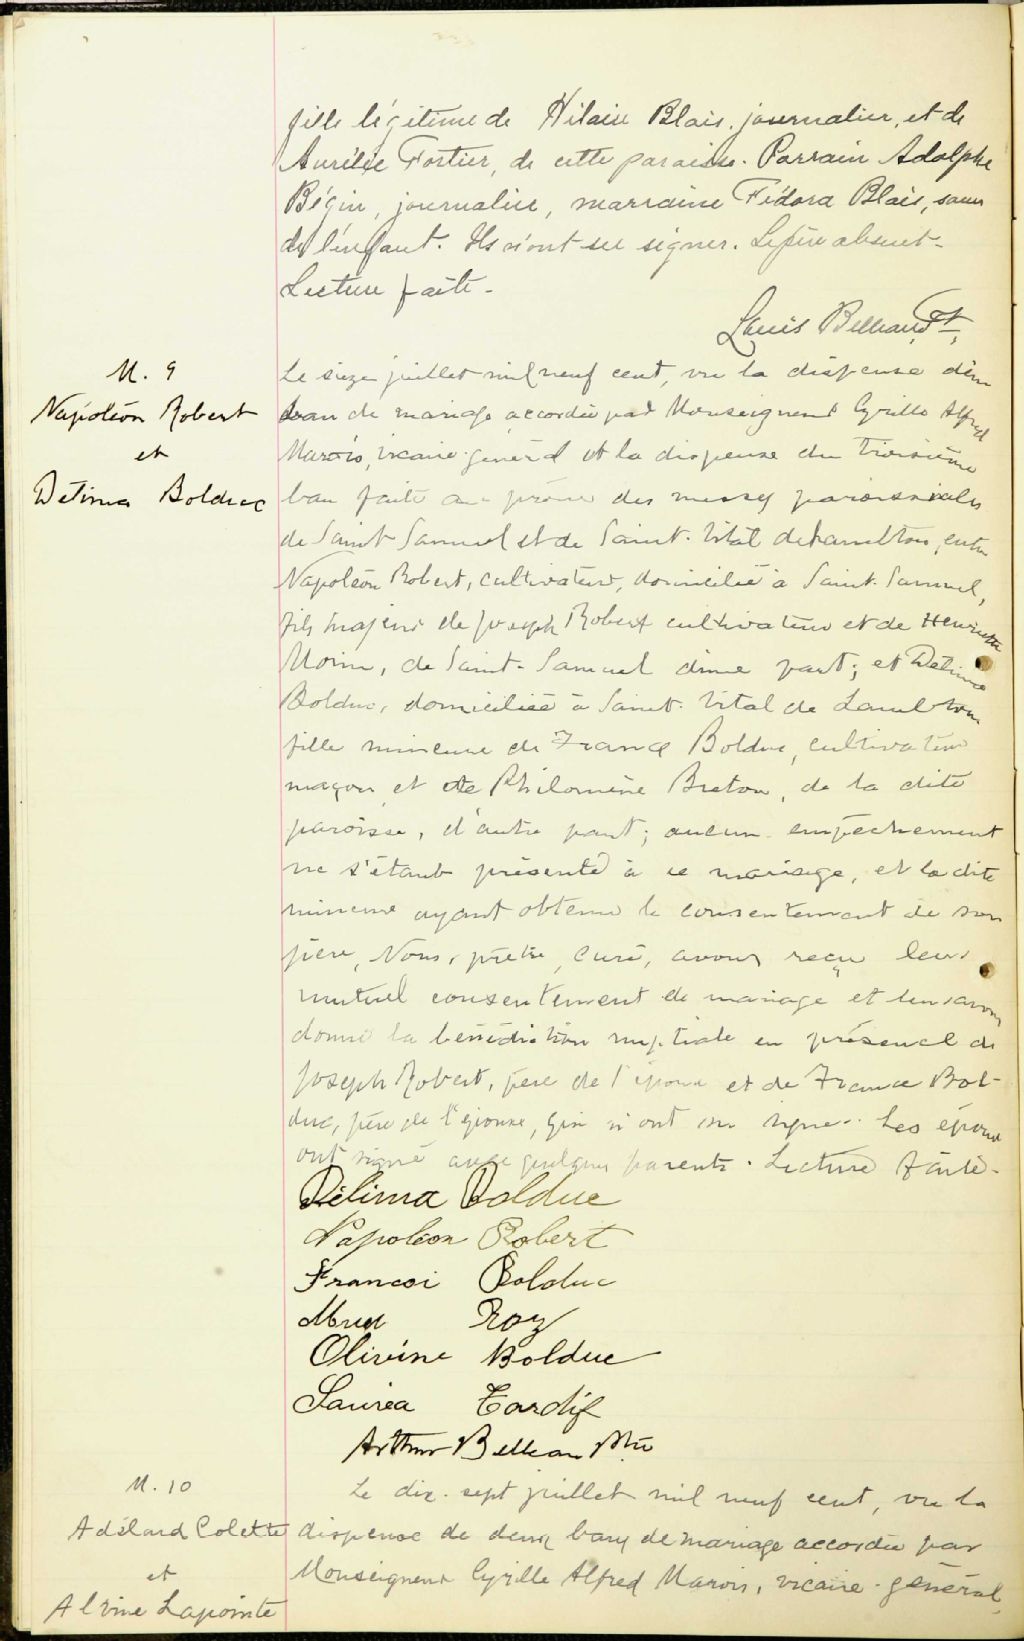 fille légitime de Hilaire Blais, journalier, et de
Aurélie Fortier, de cette paroisse. Parrain Adolphe
Bégin, journalier, marraine Fédora Blais, sœur
de l'enfant. Ils n'ont su signer. Le père absent.
Lecture faite.
Louis Belleau, Ptre
M. 9
Napoléon Robert
et
Délima Bolduc
Le seize juillet mil neuf cent, vu la dispense d'un
ban de mariage accordée par Monseigneur Cyrille Alfred
Marois, vicaire-général et la dispense du troisième
ban faite au prône des messes paroissiales
de Saint Samuel et de Saint-Vital de Lambton, entre
Napoléon Robert, cultivateur, domicilié à Saint-Samuel,
fils majeur de Joseph Robert cultivateur et de Henriette
Morin, de Saint-Samuel d'une part; et Délima
Bolduc, domiciliée à Saint-Vital de Lambton
fille mineure de France Bolduc, cultivateur
maçon, et de Philomène Breton, de la dite
paroisse, d'autre part; aucun empêchement
ne s'étant présenté à ce mariage, et la dite
mineure ayant obtenu le consentement de son
père, Nous, prêtre, curé, avons reçu leur
mutuel consentement de mariage et leur avons
donné la bénédiction nuptiale en présence de
Joseph Robert, père de l'époux et de France Bol-
duc, père de l'épouse, qui n'ont su signer. Les époux
ont signé avec quelques parents. Lecture faite.
Délima Bolduc
Napoléon Robert
Francoi Bolduc
Roy
Olivine Bolduc
Laurea Tardif
Arthur Belleau Ptre
M. 10
Adélard Colette
et
Alvine Lapointe
Le dix-sept juillet mil neuf cent, vu la
dispense de deux bans de mariage accordée par
Monseigneur Cyrille Alfred Marois, vicaire-général,